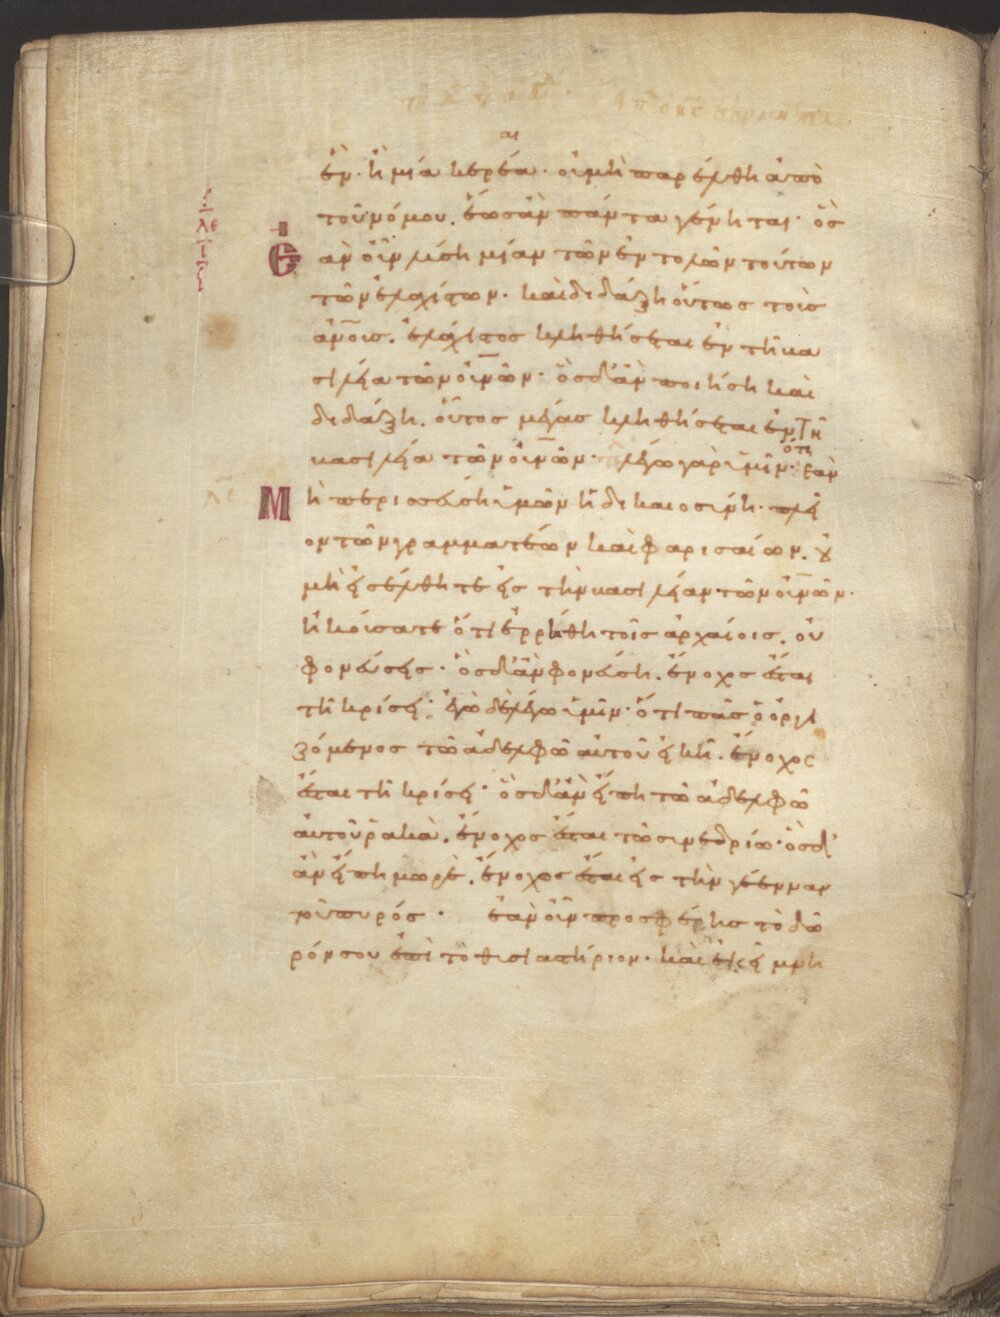 ἓν· ἢ μία κερέα· οὐ μὴ παρέλθη ἀπὸ
τοῦ νόμου. ἕως ἂν πάντα γένηται· ὃς
ἂν οὖν λύση μίαν τῶν ἐντολῶν τούτων
τῶν ἐλαχίστων· καὶ διδάξη οὕτως τοὺς
ἀν̅ους. ἐλάχιστος κληθήσεται ἐν τῆ βα
σιλεία τῶν οὐν̅ῶν· ὃς δ' ἂν ποιήση καὶ
διδάξη. οὗτος μέγας κληθήσεται ἐν τῆ
βασιλεία τῶν οὐν̅ῶν· λέγω γὰρ ὑμῖν· ὅτι ἐὰν
μὴ περισσεύση ὑμῶν ἡ δικαιοσύνη· πλεῖ
ον τῶν γραμματέων καὶ φαρισαίων. οὐ
μὴ εἰσέλθητε εἰς τὴν βασιλείαν τῶν οὐν̅ῶν·
ἠκούσατε ὅτι ἐρρήθη τοῖς ἀρχαίοις. οὐ
φονεύσεις· ὃς δ' ἂν φονεύση. ἔνοχος ἔσται
τῆ κρίσει· ἐγὼ δὲ λέγω ὑμῖν· ὅτι πᾶς ὁ ὀργι
ζόμενος τῶ ἀδελφῶ αὐτοῦ εἰκῆ. ἔνοχος
ἔσται τῆ κρίσει· ὃς δ' ἂν εἴπη τῶ ἀδελφῶ
αὐτοῦ ῥακὰ. ἔνοχος ἔσται τῶ συνεδρίω· ὃς δ'
ἂν εἴπη μωρὲ. ἔνοχος ἔσται εἰς τὴν γέενναν
τοῦ πυρός· ἐὰν οὖν προσφέρης τὸ δῶ
ρόν σου ἐπὶ τὸ θυσιαστήριον· καὶ ἐκεῖ μνη